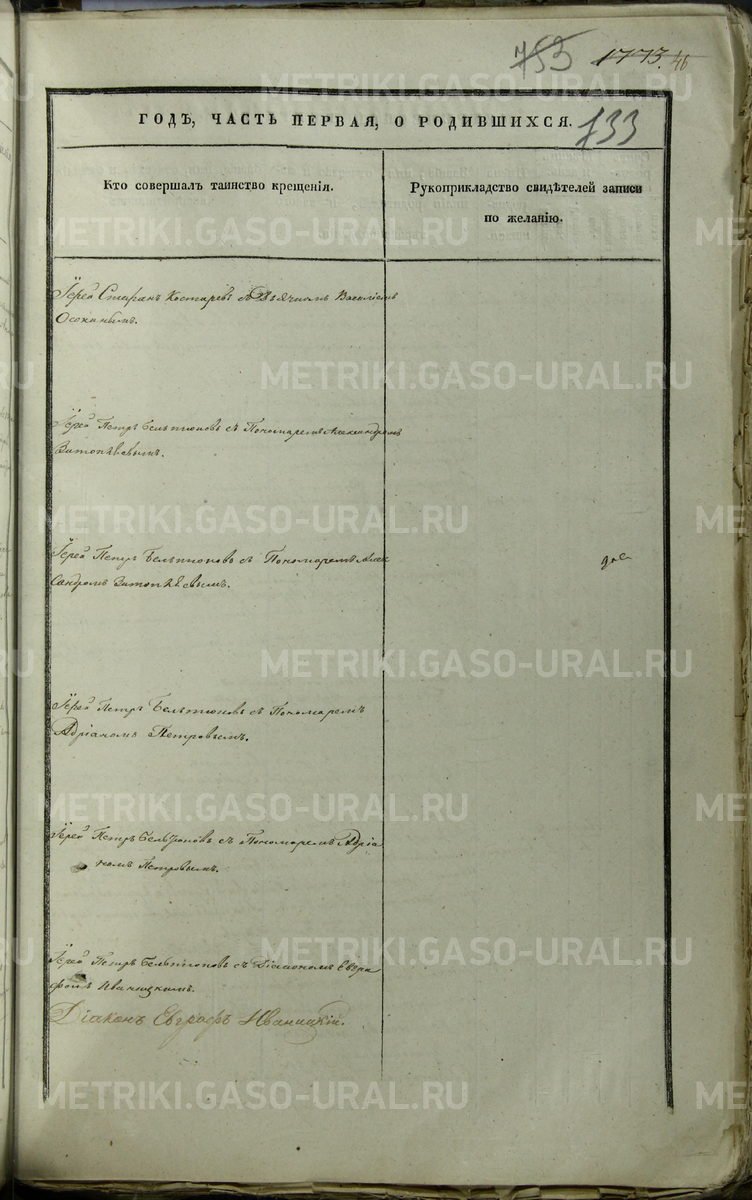 753 1773. 46
ГОДЪ, ЧАСТЬ ПЕРВАЯ, О РОДИВШИХСЯ.
133
Кто совершалъ таинство крещенія.
Рукоприкладство свидѣтелей записи
по желанію.
Іерей Стефанъ Костаревъ съ Дьячкомъ Василіемъ
Осокинымъ.
Іерей Петръ Бельтюковъ съ Пономаремъ Александромъ
Іерей Петръ Бельтюковъ съ Пономаремъ Алек
сандромъ
Іерей Петръ Бельтюковъ съ Пономаремъ
Адріаномъ Петровымъ.
Іерей Петръ Бельтюковъ съ Пономаремъ Адріа
номъ Петровымъ.
Іерей Петръ Бельтюковъ съ Діакономъ Евгра
фомъ Иваницкимъ.
Діаконъ Евграфъ Иваницкій.
METRIKI.GASO-URAL.RU